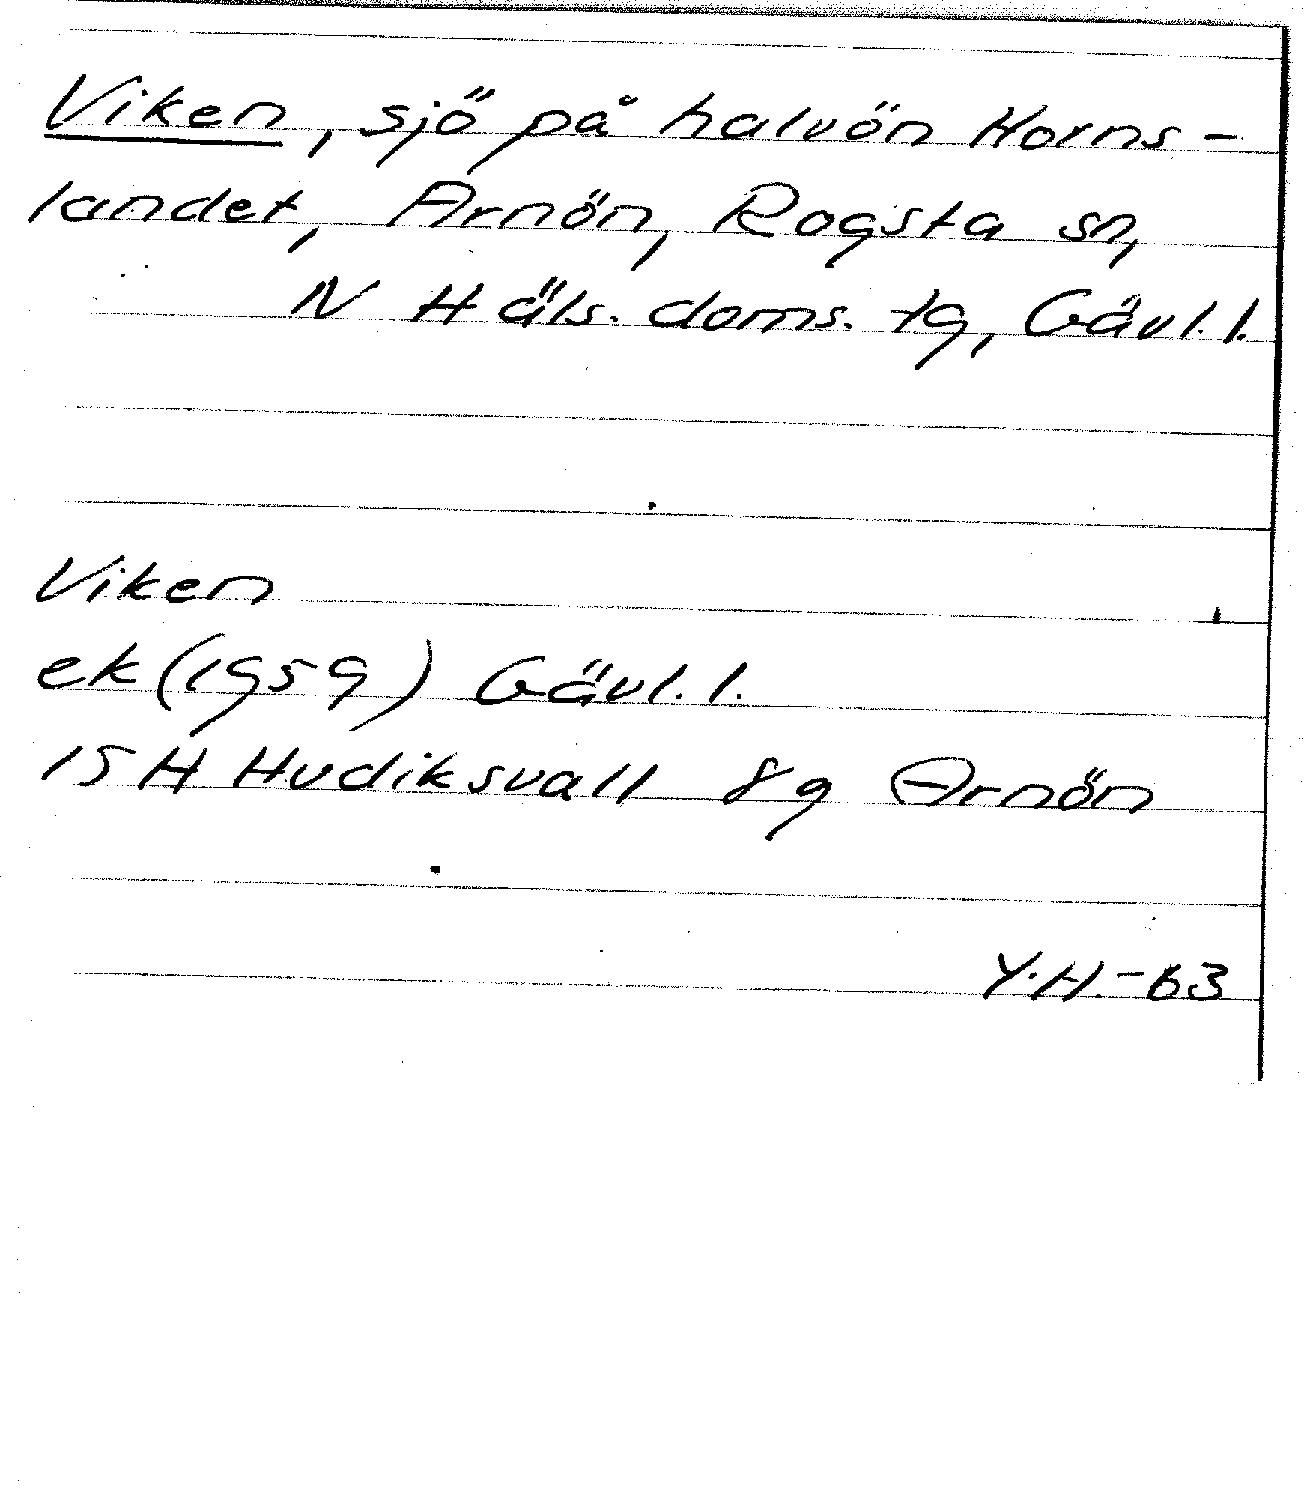 Viken, sjö på halvön Horns-
landet, Arnön, Rogsta sn,
N Häls. doms. tg, Gävl. l.
Viken
ek (1959) Gävl. l.
15 H Hudiksvall 8g Arnön
Y.H.-63